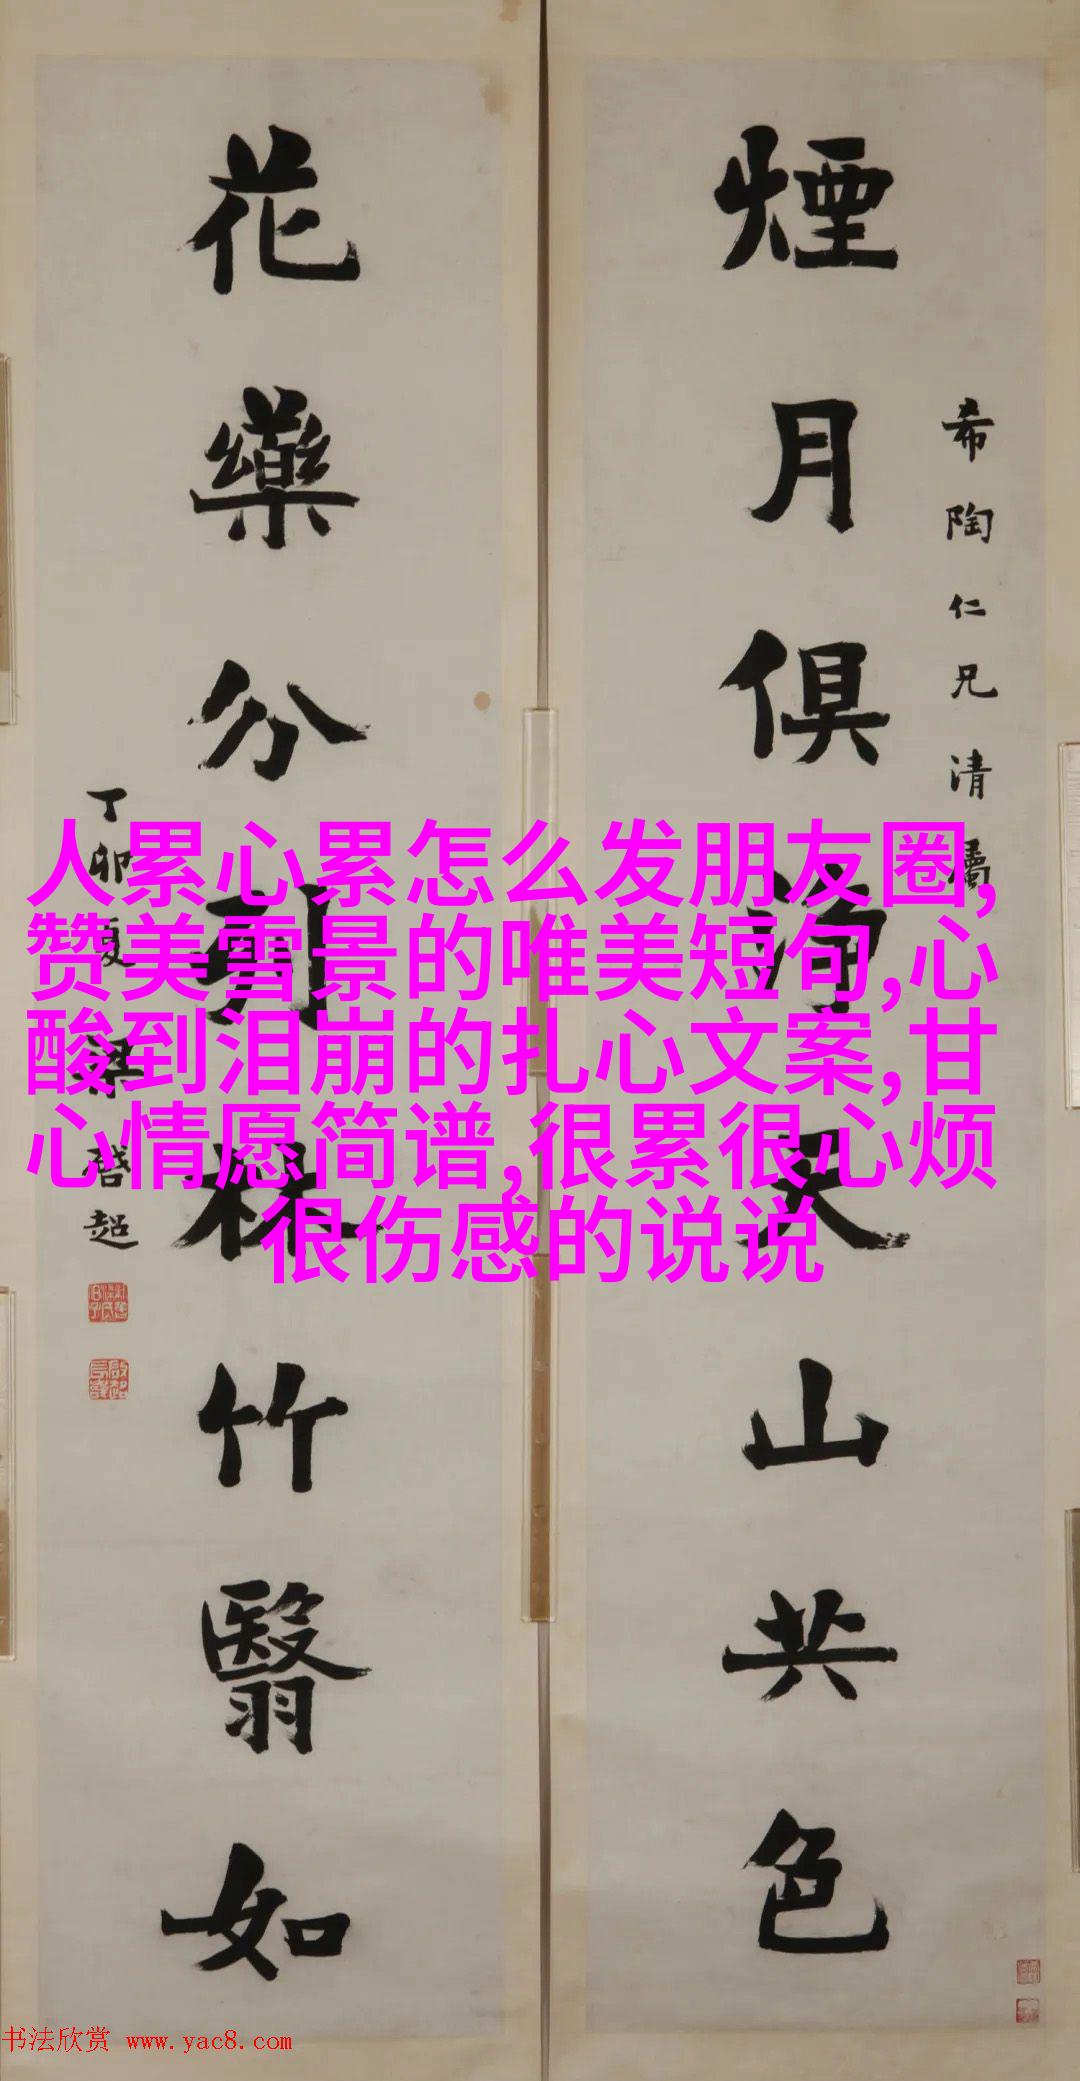 希陶仁兄清屬
煙月俱淨天山共色
花藥分列林竹翳如
丁卯夏梁啓超
人累心累怎么发朋友圈,
赞美雪景的唯美短句,心
酸到泪崩的扎心文案,甘
心情愿简谱,很累很心烦
很伤感的说说
书法欣赏 www.yac8.com